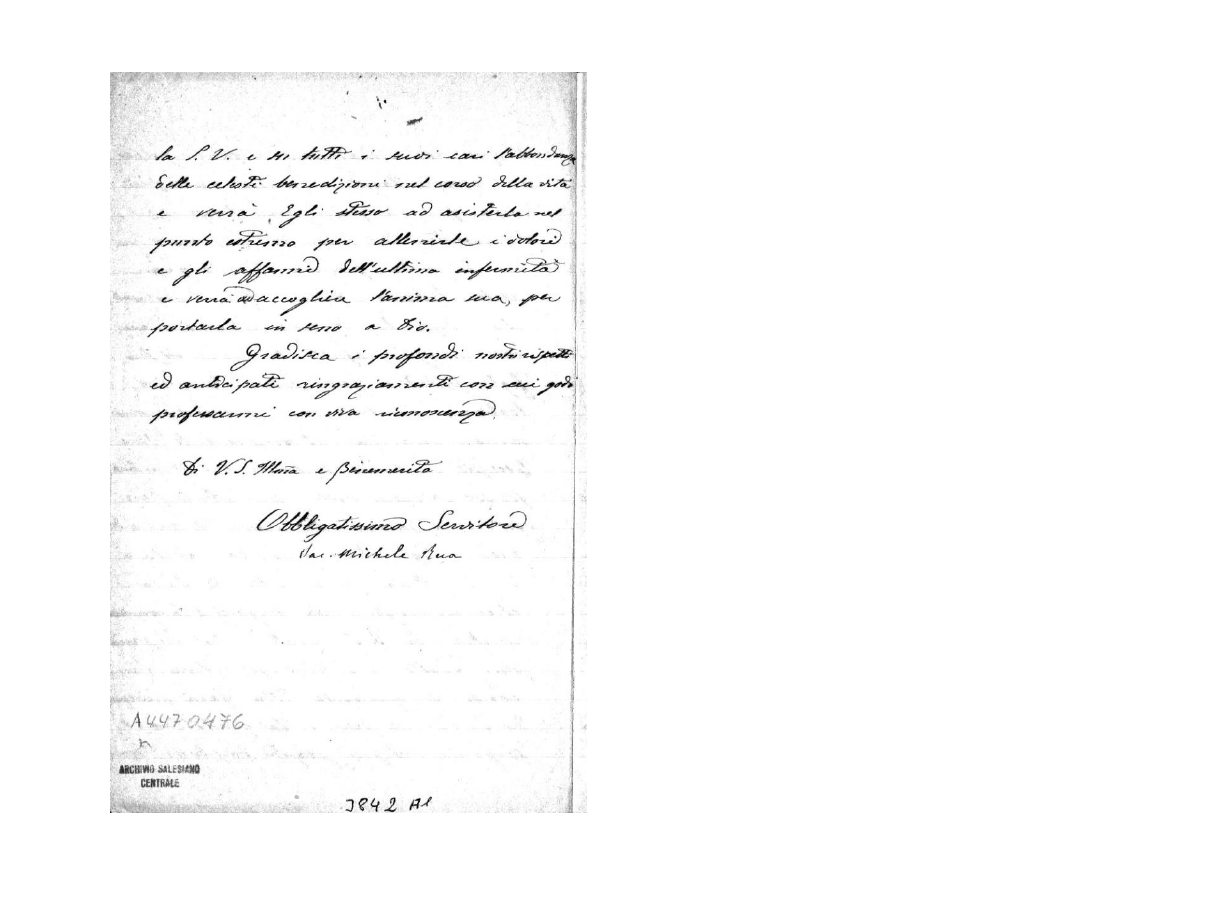 la S. V. e su tutti i suoi cari l'abbondanza
delle celesti benedizioni nel corso della vita
e verrà Egli stesso ad asisterla nel
punto estremo per allenirle i dolori
e gli affanni dell'ultima infermità
e verrà ad accogliere l'anima sua, per
portarla in seno a Dio.
Gradisca i profondi nostri rispetti
ed anticipati ringraziamenti con cui godo
professarmi con viva riconoscenza
Di V. S. Illma e Benemerita
Obbligatissimo Servitore
Sac. Michele Rua
A4470476
ARCHIVIO SALESIANO
CENTRALE
3842 A1